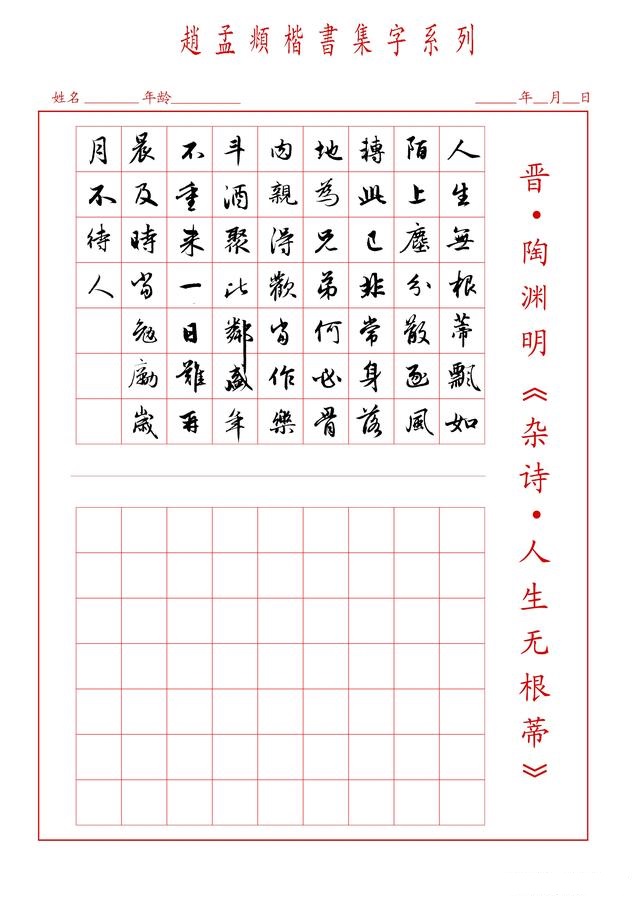 趙孟頫楷書集字系列
姓名 ________ 年龄__________ ______年__月__日
晋·陶渊明《杂诗·人生无根蒂》
人生無根蒂飄如
陌上塵分散逐風
轉此已非常身落
地為兄弟何必骨
肉親得歡當作樂
斗酒聚比鄰盛年
不重来一日難再
晨及時當勉勵歲
月不待人